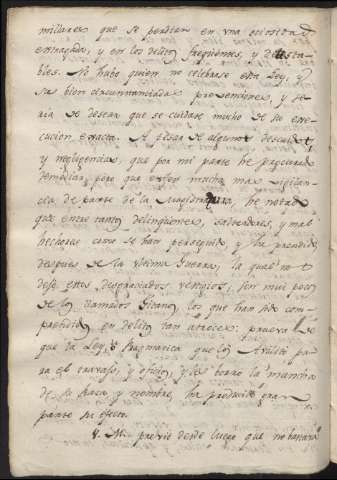 millares que se perdian en una ociosidad
estragada, y en los delitos freqüentes y detesta-
bles. No hubo quien no celebrase esta Ley, y
sus bien circunstanciadas prevenciones, y se-
ria de desear que se cuidase mucho de su exe-
cucion exacta. A pesar de algunos descuidos,
y negligencias, que por mi parte he procurado
remediar, pero que exigen mucha mas vigilan-
cia de parte de la Magistratura, he notado
que entre tantos delinquentes, salteadores, y mal
hechores como se han perseguido, y ha prendido
despues de la ultima Guerra, la qual nos
dejó estos desgraciados vestigios, son mui pocos
de los llamados Gitanos, los que han sido com-
prehendidos en delitos tan atroces: prueba de
que la Ley, ò Pragmatica que los habilitó pa-
ra el travajo, y oficios, y les borró la mancha
de su Raza y nombre, ha producido gran
parte su efecto.
V. M. previó desde luego que no bastaria